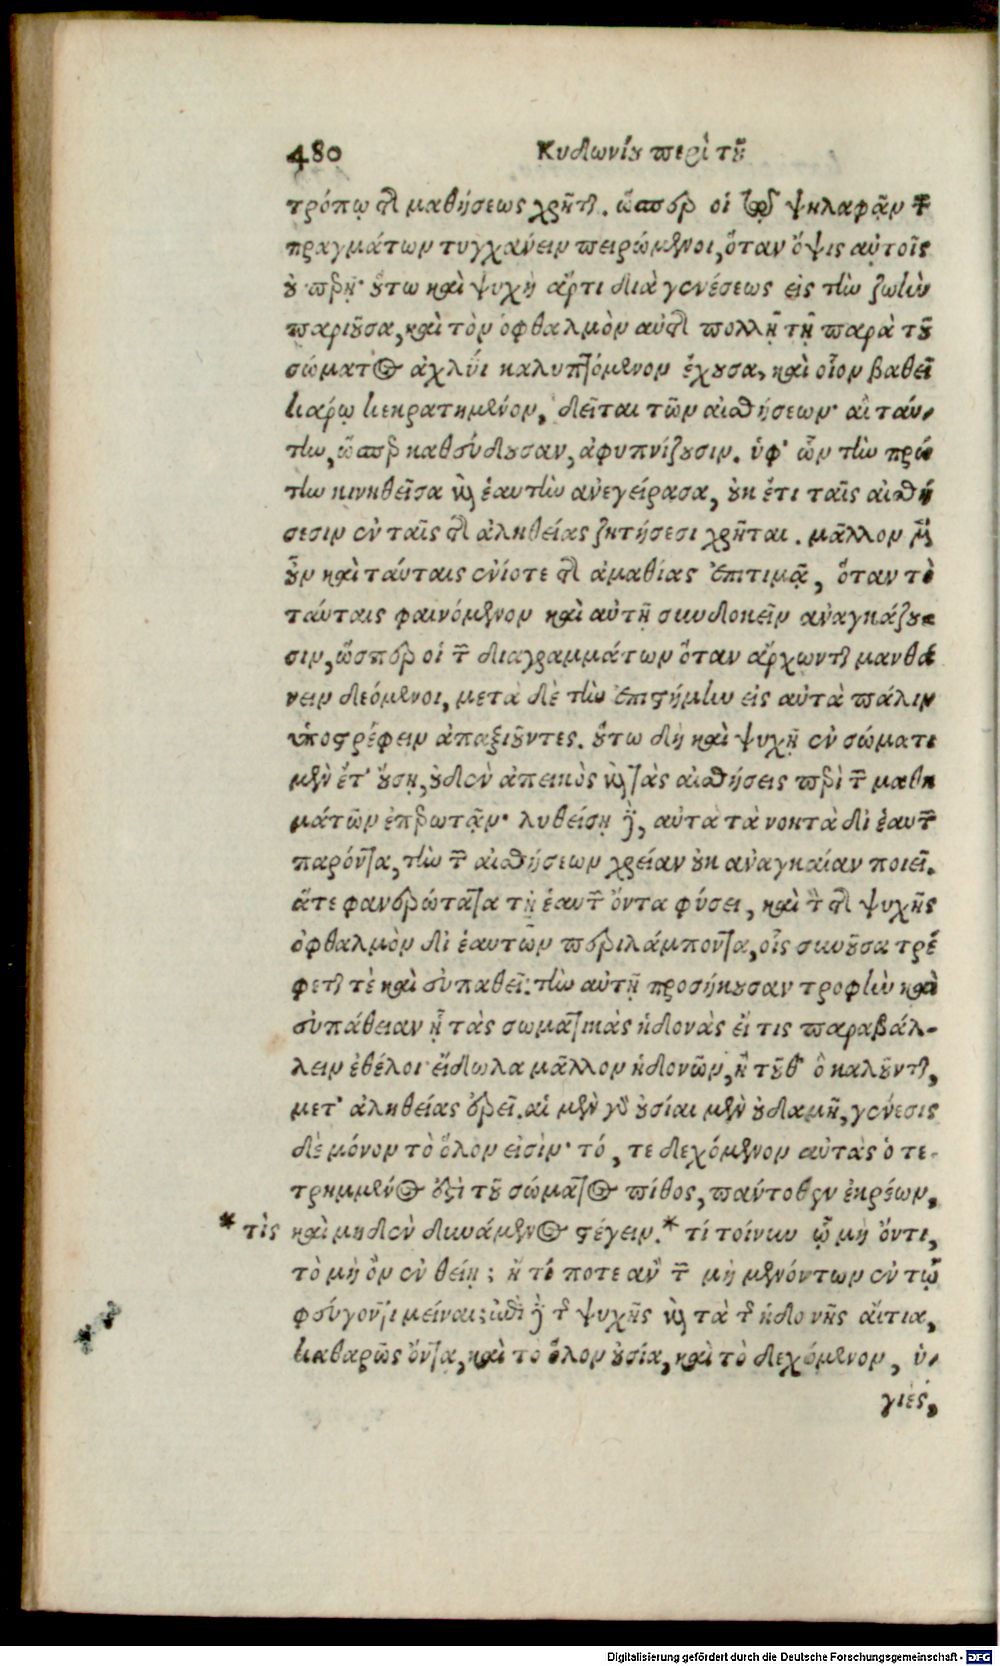 480 Κυδωνίου περὶ τοῦ
τρόπῳ τῆς μαθήσεως χρῆται. ὥσπερ οἱ τῷ ψηλαφᾷν τῶν
πραγμάτων τυγχάνειν πειρώμενοι, ὅταν ὄψις αὐτοῖς
οὐ παρῇ· οὕτω καὶ ψυχὴ ἄρτι διὰ γενέσεως εἰς τὴν ζωὴν
παριοῦσα, καὶ τὸν ὀφθαλμὸν αὐτῆς πολλῇ τῇ παρὰ τοῦ
σώματος ἀχλύϊ καλυπτόμενον ἔχουσα, καὶ οἷον βαθεῖ
κάρῳ κεκρατημένον, δεῖται τῶν αἰσθήσεων· αἳ ταύ-
την, ὥσπερ καθεύδουσαν, ἀφυπνίζουσιν. ὑφ' ὧν τὴν πρώ
την κινηθεῖσα καὶ ἑαυτὴν ἀνεγείρασα, οὐκ ἔτι ταῖς αἰσθή
σεσιν ἐν ταῖς τῆς ἀληθείας ζητήσεσι χρῆται. μᾶλλον μὲν
οὖν καὶ ταύταις ἐνίοτε τῆς ἀμαθίας ἐπιτιμᾷ, ὅταν τὸ
ταύταις φαινόμενον καὶ αὐτῇ συνδοκεῖν ἀναγκάζου
σιν, ὥσπερ οἱ τῶν διαγραμμάτων ὅταν ἄρχωνται μανθά
νειν δεόμενοι, μετὰ δὲ τὴν ἐπιστήμην εἰς αὐτὰ πάλιν
ὑποστρέφειν ἀπαξιοῦντες. οὕτω δὴ καὶ ψυχῇ ἐν σώματι
μὲν ἔτ' οὔσῃ, οὐδὲν ἀπεικὸς καὶ τὰς αἰσθήσεις περὶ τῶν μαθη
μάτων ἐπερωτᾷν· λυθείσῃ δὲ, αὐτὰ τὰ νοητὰ δι' ἑαυτῶν
παρόντα, τὴν τῶν αἰσθήσεων χρείαν οὐκ ἀναγκαίαν ποιεῖ.
ἅτε φανερώτατα τῇ ἑαυτῶν ὄντα φύσει, καὶ τὸν τῆς ψυχῆς
ὀφθαλμὸν δι' ἑαυτῶν περιλάμποντα, οἷς συνοῦσα τρέ
φεταί τε καὶ εὐπαθεῖ· τὴν αὐτῇ προσήκουσαν τροφὴν καὶ
εὐπάθειαν ᾗ τὰς σωματικὰς ἡδονὰς εἴ τις παραβάλ-
λειν ἐθέλοι· εἴδωλα μᾶλλον ἡδονῶν, ἢ τοῦθ' ὃ καλοῦνται,
μετ' ἀληθείας ἐρεῖ. αἱ μὲν γὰρ οὐσίαι μὲν οὐδαμῆ, γένεσις
δὲ μόνον τὸ ὅλον εἰσὶν· τό, τε δεχόμενον αὐτὰς ὁ τε-
τρημμένος ἐστὶ τοῦ σώματος πίθος, πάντοθεν ἐκρέων,
*τὶς καὶ μηδὲν δυνάμενος στέγειν.* τί τοίνυν ᾧ μὴ ὄντι,
τὸ μὴ ὂν ἐνθείη; ἢ τί ποτε ἂν τῶν μὴ μενόντων ἐν τῷ
φεύγοντι μείναι; ἐπὶ δὲ τῆς ψυχῆς καὶ τὰ τῆς ἡδονῆς αἴτια,
καθαρῶς ὄντα, καὶ τὸ ὅλον οὐσία, καὶ τὸ δεχόμενον, ὑ-
γιές,
Digitalisierung gefördert durch die Deutsche Forschungsgemeinschaft - DFG